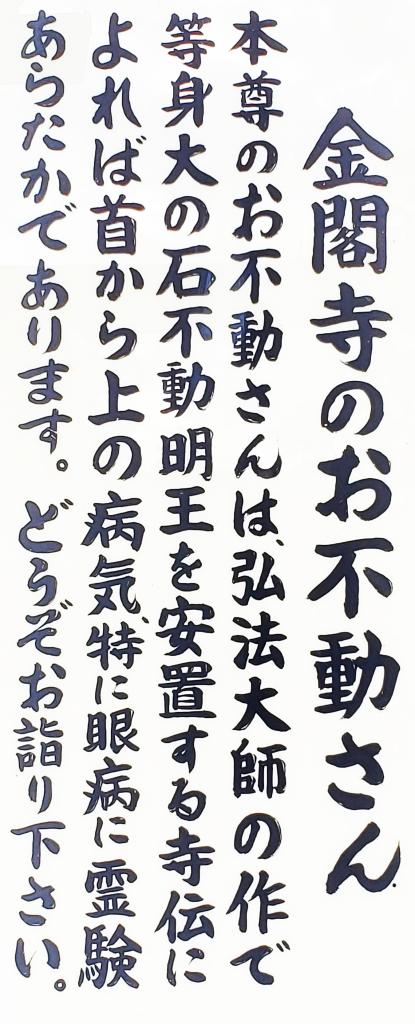 金閣寺のお不動さん
本尊のお不動さんは、弘法大師の作で
等身大の石不動明王を安置する寺伝に
よれば首から上の病気、特に眼病に霊験
あらたかであります。どうぞお詣り下さい。